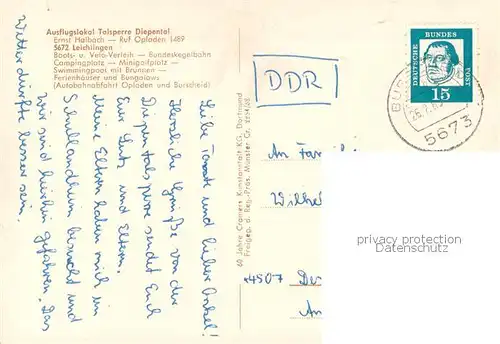 Ausflugslokal Talsperre Diepental
Ernst Halbach — Ruf Opladen 1489
5672 Leichlingen
Boots- u. Velo-Verleih — Bundeskegelbahn
Campingplatz — Minigolfplatz —
Swimmingpool mit Brunnen —
Ferienhäuser und Bungalows
(Autobahnabfahrt Opladen und Burscheid)
Liebe Tante und lieber Onkel!
Herzliche Grüße von der
Diepentalsperre sendet Euch
Euer Lutz und Eltern.
Meine Eltern haben mich im
Schullandheim besucht und
wir sind hierhin gefahren. Das
Wetter dürfte besser sein.
60 Jahre Cramers Kunstanstalt KG, Dortmund
Freigeg. d. Reg.-Präs. Münster
DDR
DEUTSCHE BUNDES POST
15
5673
An Famil
Wilhe
4507
An
privacy protection
Datenschutz